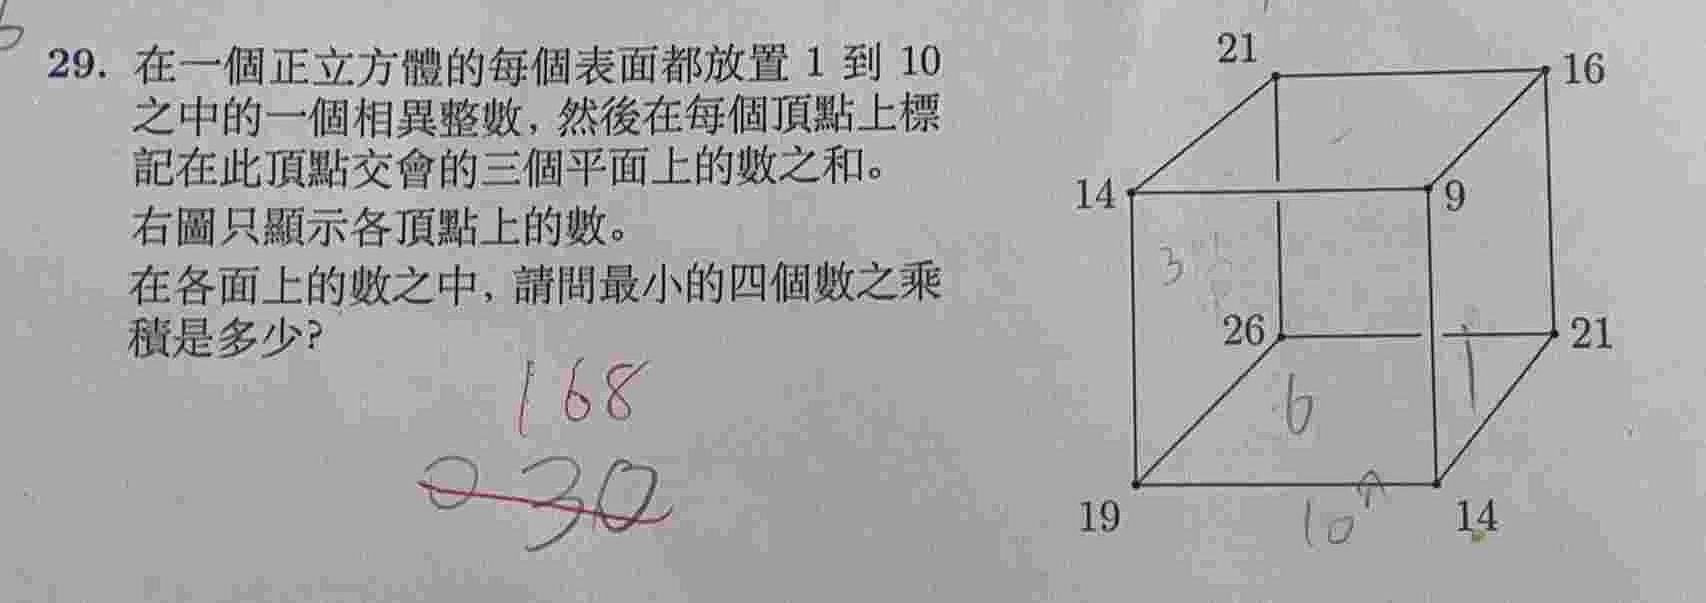 29. 在一個正立方體的每個表面都放置 1 到 10
之中的一個相異整數, 然後在每個頂點上標
記在此頂點交會的三個平面上的數之和。
右圖只顯示各頂點上的數。
在各面上的數之中, 請問最小的四個數之乘
積是多少?
168
30
21
16
14
9
3
26
21
6
1
19
10
14